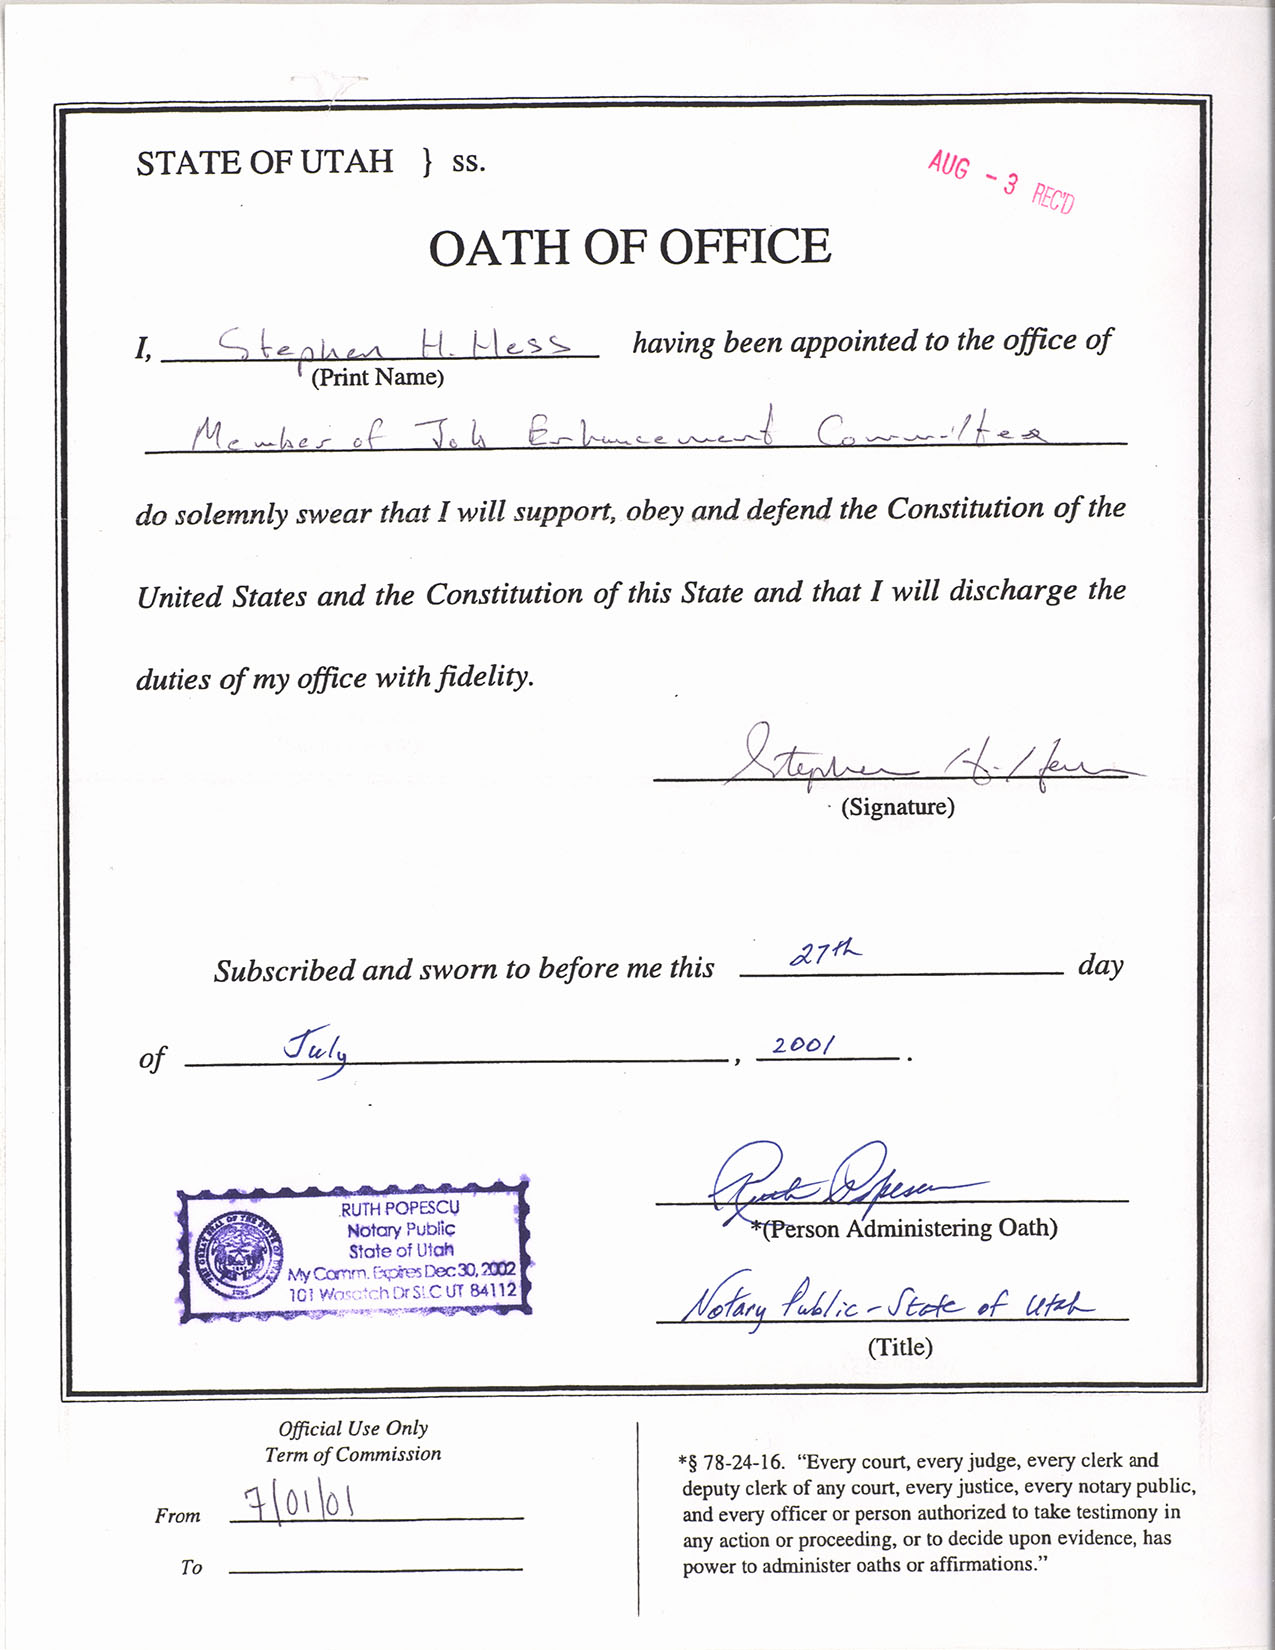 STATE OF UTAH } ss.
AUG - 3 REC'D
OATH OF OFFICE
I, Stephen H. Hess having been appointed to the office of
(Print Name)
Member of Job Enhancement Committee
do solemnly swear that I will support, obey and defend the Constitution of the
United States and the Constitution of this State and that I will discharge the
duties of my office with fidelity.
Stephen H. Hess
(Signature)
Subscribed and sworn to before me this 27th day
of July, 2001.
RUTH POPESCU
Notary Public
State of Utah
My Comm. Expires Dec 30, 2002
101 Wasatch Dr SLC UT 84112
Ruth Popescu
*(Person Administering Oath)
Notary Public - State of Utah
(Title)
Official Use Only
Term of Commission
From 7/01/01
To
*§ 78-24-16. “Every court, every judge, every clerk and
deputy clerk of any court, every justice, every notary public,
and every officer or person authorized to take testimony in
any action or proceeding, or to decide upon evidence, has
power to administer oaths or affirmations.”